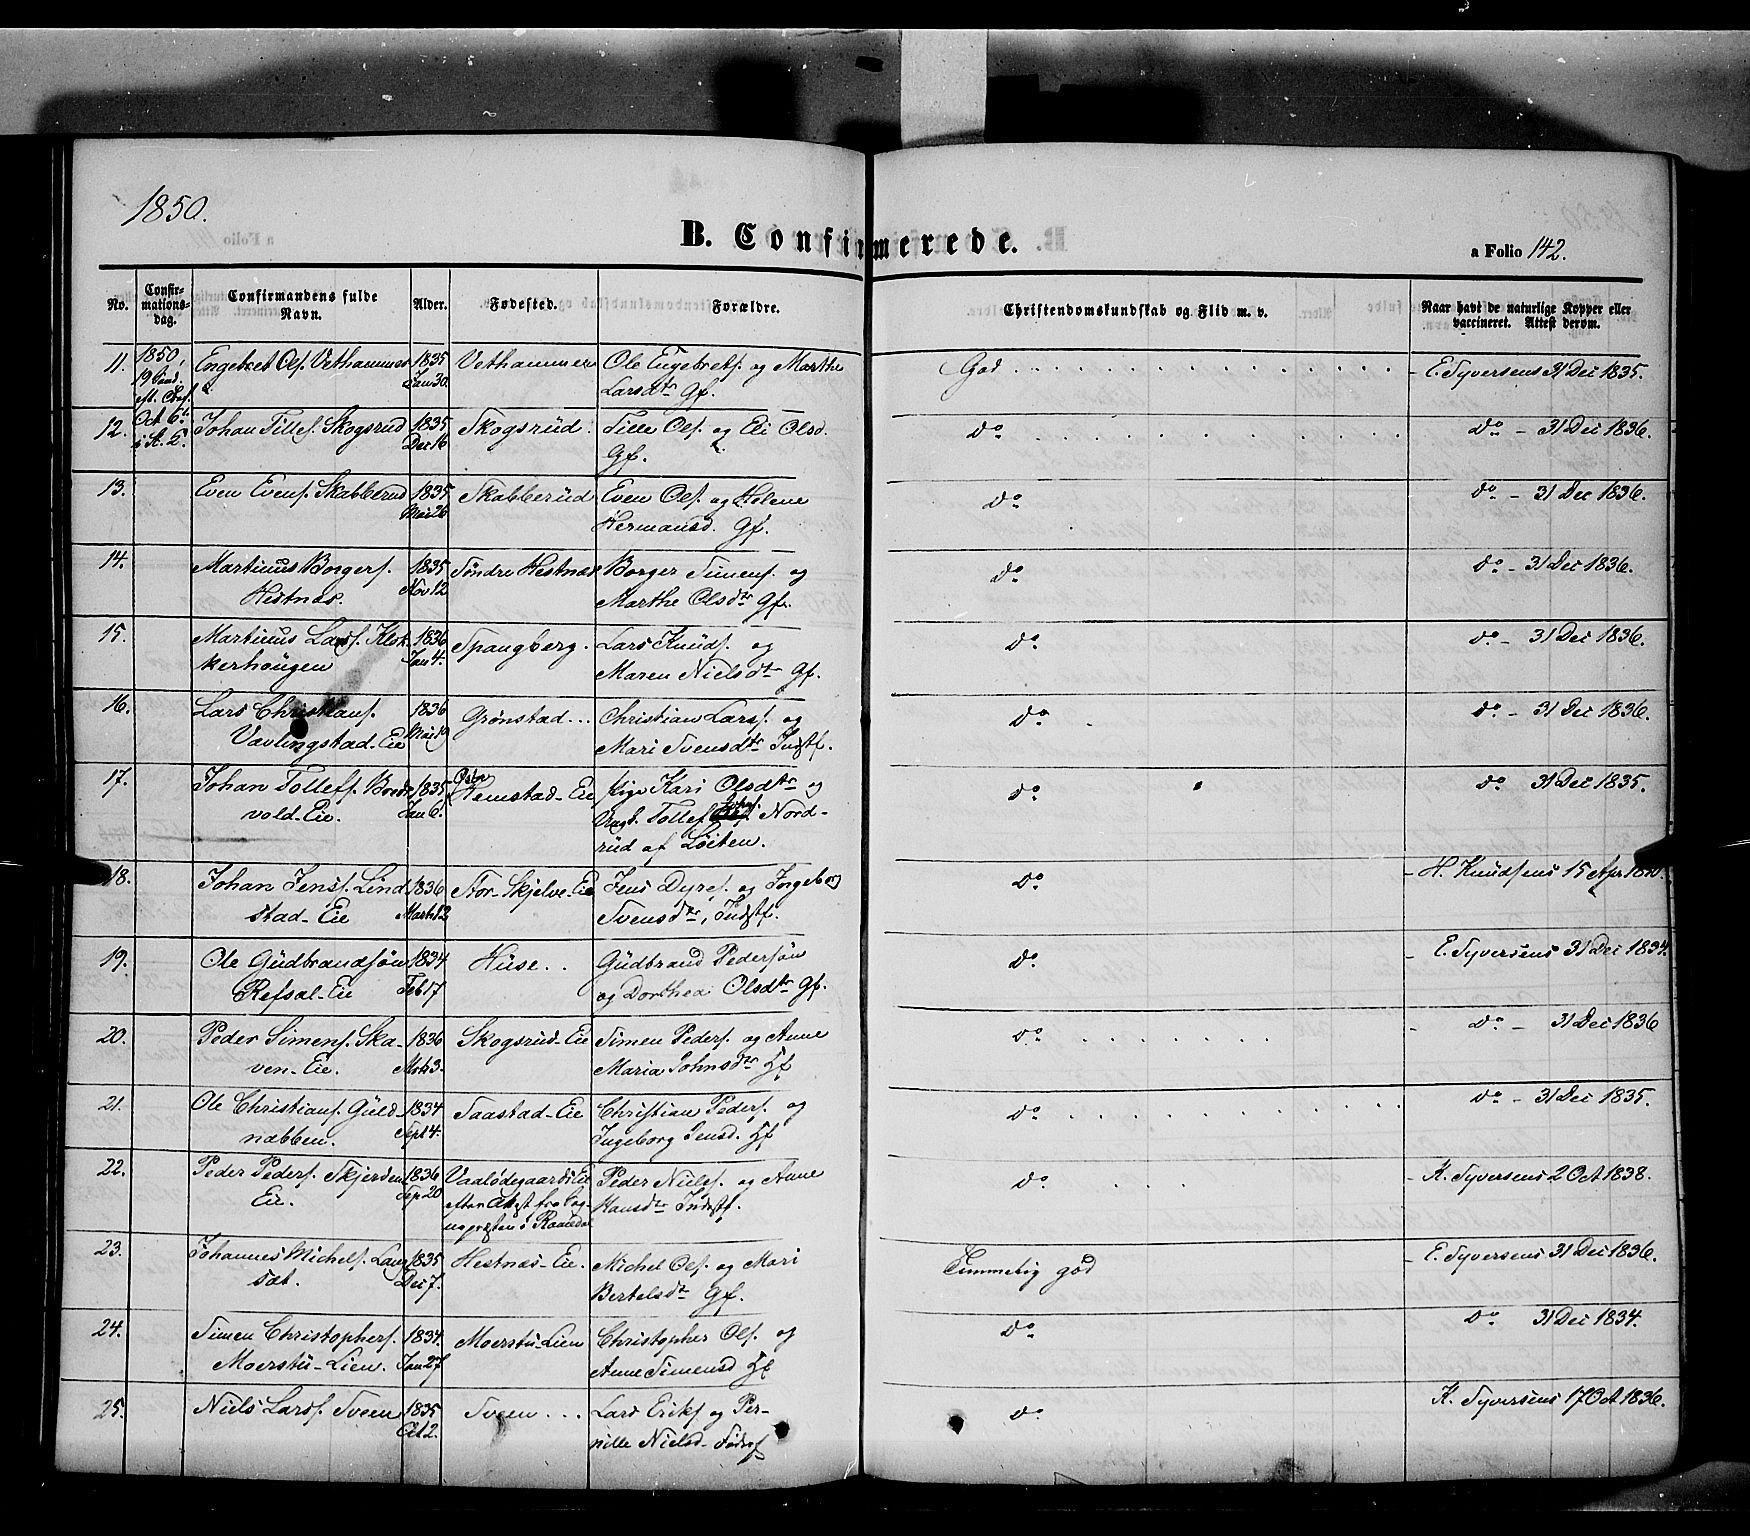 1850.
B. Confirmerede.
a Folio 142.
No. Confirmationsdag. Confirmandens fulde Navn. Alder. Fødested. Forældre. Christendomskundskab og Flid m. v. Naar havt de naturlige Kopper eller vaccineret. Attest derom.
11. 1850, 19 Sønd. Engebret Ols. Vethammer 1835 Jan 30. Vethammer Ole Engebrets. og Marthe Larsdtr Gf. God E. Syversens 31 Dec 1835.
12. Oct 6. Johan Tilles. Skogsrud 1835 Dec 16 Skogsrud. Tille Ols. og Eli Olsd. Gf. do do - 31 Dec 1836.
13. Even Evens. Skabberud 1835 Mai 26 Skabberud Even Ols. og Helene Hermansd. Gf. do do - 31 Dec 1836.
14. Martinus Borgers. Hestnæs. 1835 Nov 12 Søndre Hestnæs Borger Simens. og Marthe Olsdtr Gf. do do - 31 Dec 1836.
15. Martinus Larss. Klekkerhaugen 1836 Jan 4. Spangberg. Lars Knuds. og Maren Nielsdtr Gf. do do - 31 Dec 1836.
16. Lars Christians. Vavlingstad-Eie 1836 Mai 19 Grønstad... Christian Larss. og Mari Svensdtr Indstf. do do - 31 Dec 1836.
17. Johan Tollefs. Bredvold-Eie. 1835 Jan 6. Østre Hemstad-Eie Pige Kari Olsdtr og Ungk. Tollef Johs. Nordrud af Løiten. do do 31 Dec 1835.
18. Johan Jenss. Lindstad-Eie 1836 Marts 12 Stor-Skjelve-Eie Jens Dyres. og Ingeborg Svensdtr, Indstf. do - H. Knudsens 15 Apr 1840.
19. Ole Gudbrandsøn Refsal-Eie 1834 Feb 17 Huse.. Gudbrand Pedersøn og Dorthea Olsdtr Gf. do - E. Syversens 31 Dec 1834.
20. Peder Simens. Skaven-Eie. 1836 Mrts 3. Skogsrud-Eie Simen Peders. og Anne Maria Johnsdtr Hf do - do - 31 Dec 1836
21. Ole Christians. Guldnæbben. 1834 Sept 4. Saastad-Eie Christian Peders. og Ingeborg Jensd. Hf do do - 31 Dec 1835.
22. Peder Peders. Skjerden Eie. 1836 Sep 20 Vaalødegaards Eie efter Attest fra Sognepræsten i Romedal Peder Niels. og Anne Hansdtr Indstf. do - K. Syversens 2 Oct 1838.
23. Johannes Michels. Langsæt. 1835 Dec 7. Hestnæs-Eie. Michel Ols. og Mari Bertelsdtr Gf. Temmelig god - E. Syversens 31 Dec 1836.
24. Simen Christophers. Moerstu-Lien. 1834. Jan 27 Moerstu-Lien Christopher Ols. og Anne Simensd Hf do do 31 Dec 1834.
25. Niels Larss. Sveen 1835 Oct 2. Sveen... Lars Eriks. og Pernille Nielsd. do K. Syversens 17 Oct 1836.